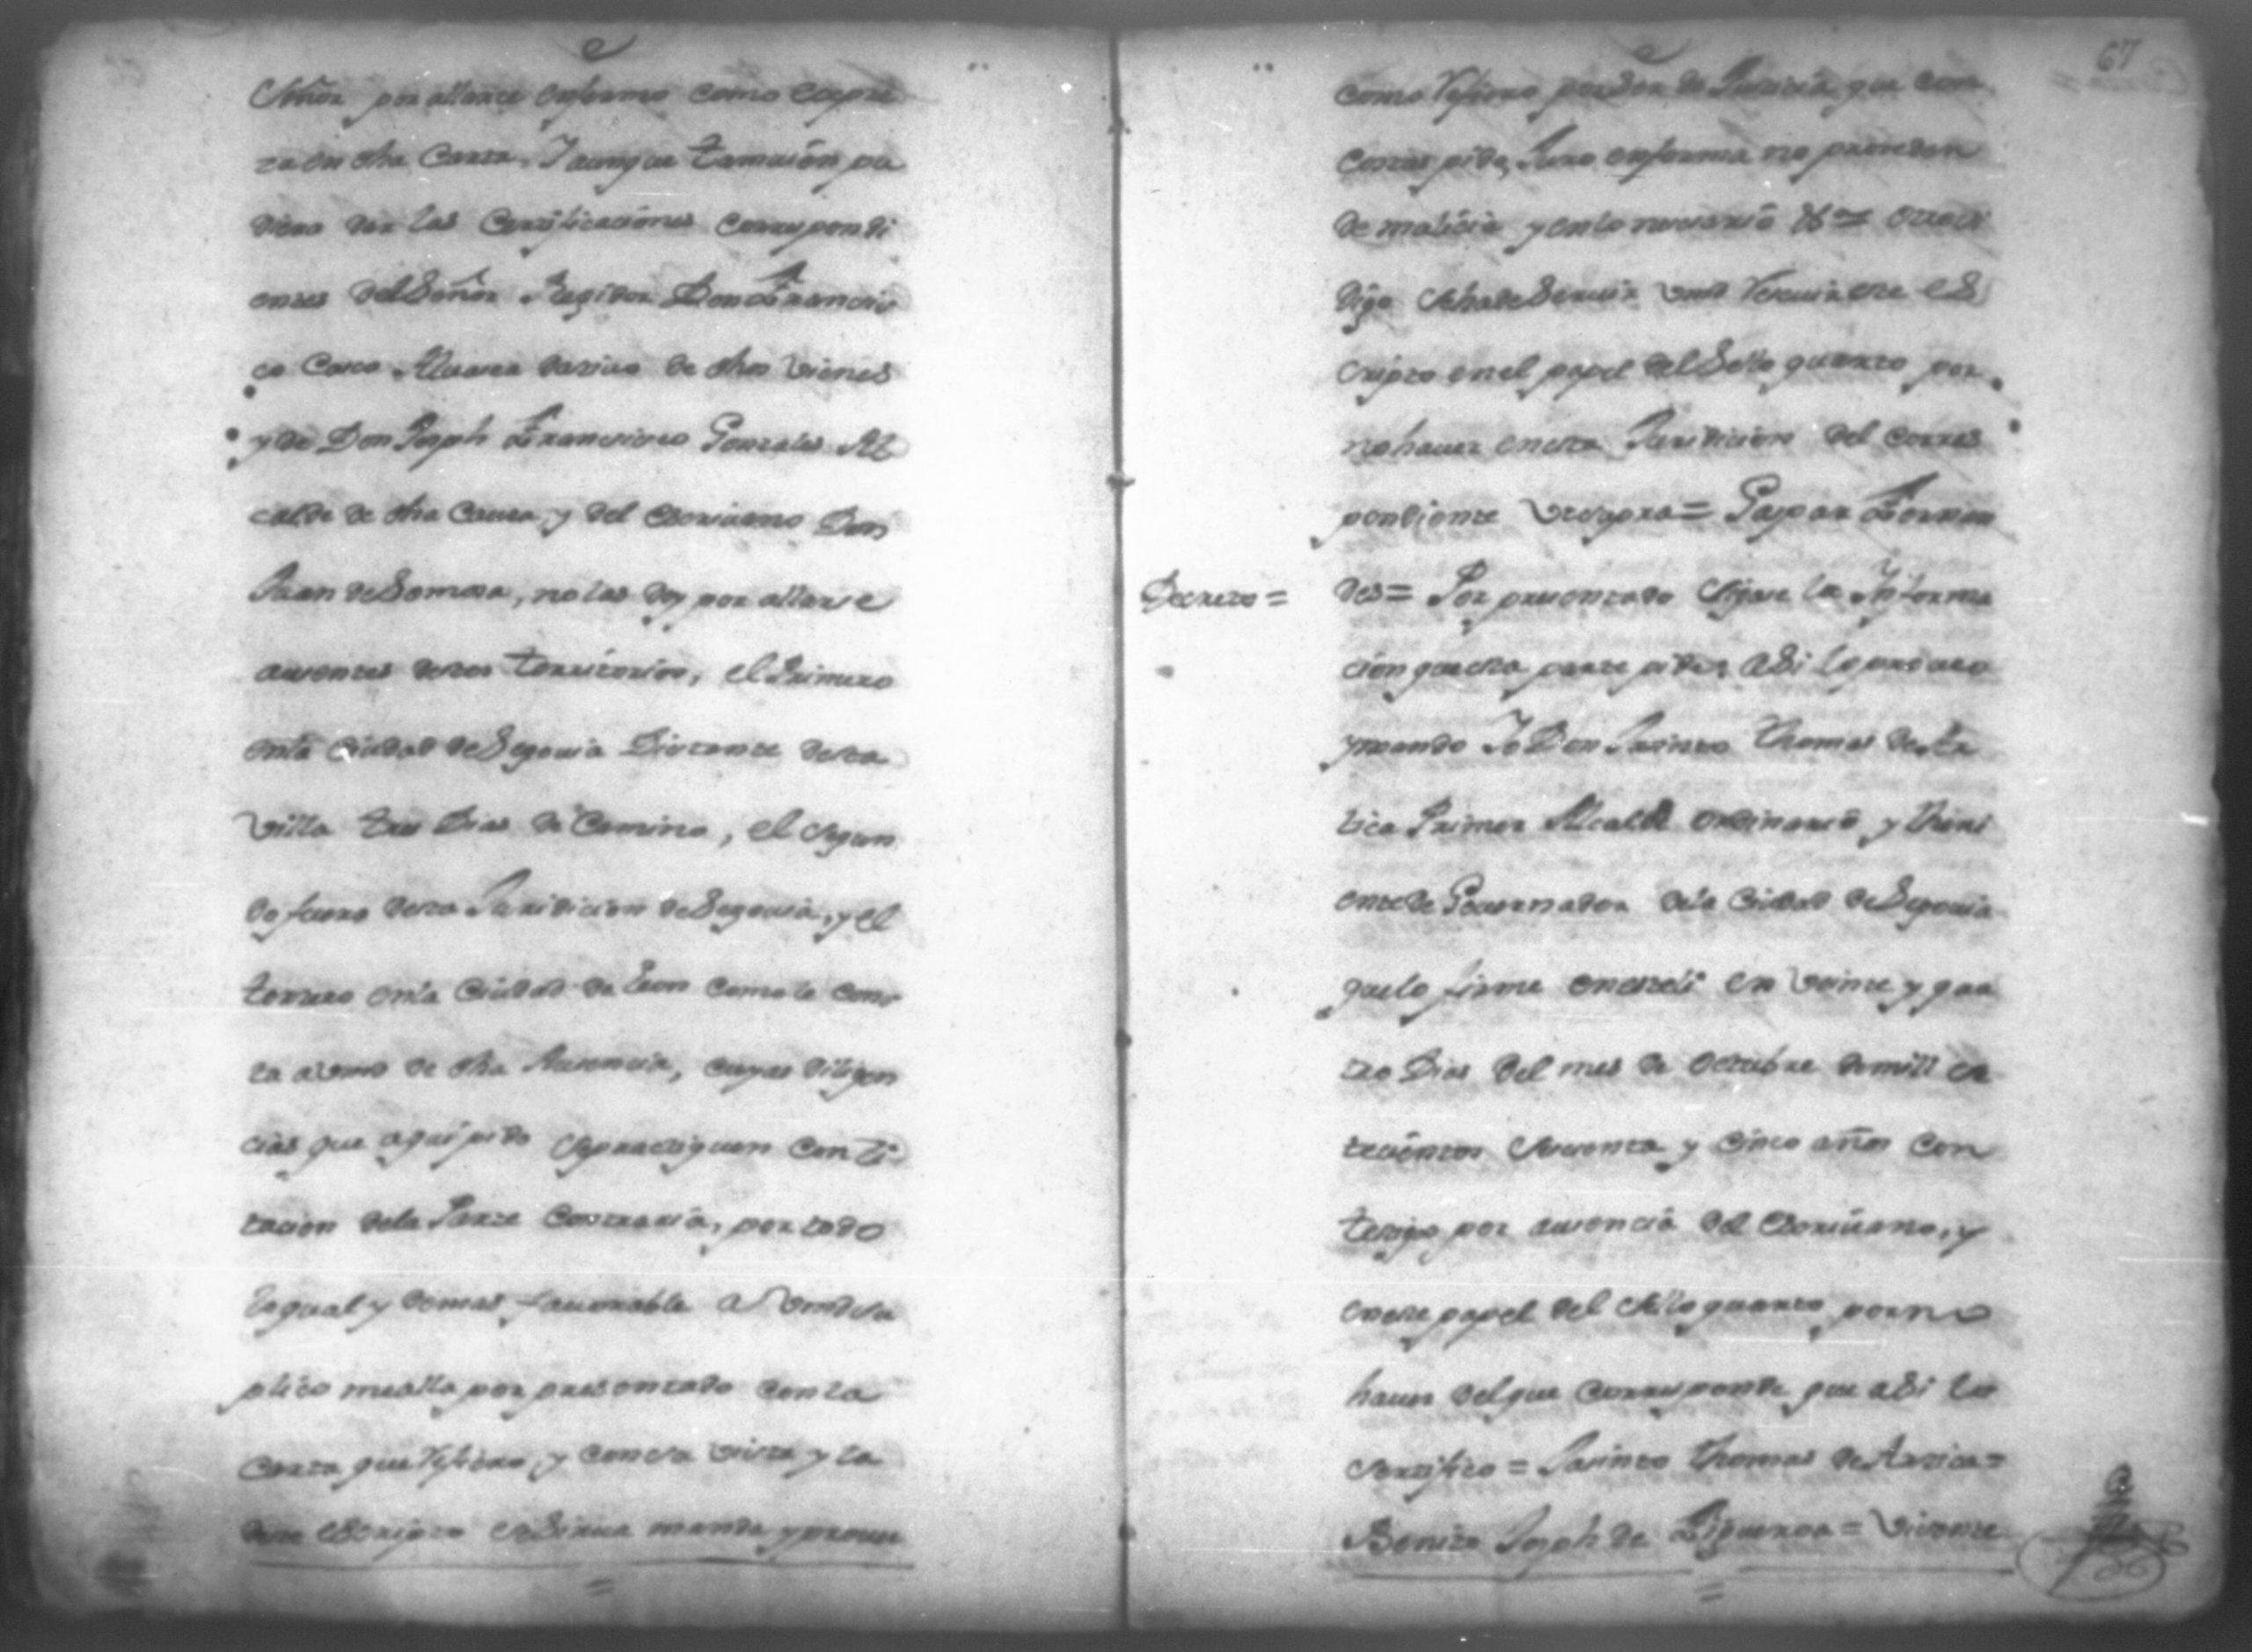 Señor por allarce enfermo como expre
za en dha Carta. Y aunque tamvión pu
diera dar las Certificaciónes Correspondi
entes del Señor Regidor Don Francis
co Casco Alvarea de dhos vienes
y de Don Joseph Francisco Gonzales Al
calde de dha Causa, y del Escrivano Don
Juan de Somosa, no las doy por allarse
ausentes destos territorios, el Primero
en la Ciudad de Segovia Distante desta
Villa tres Dias de Camino, el segun
do fuera desta Juridicion de Segovia, y el
tercero en la Ciudad de Leon como le cons
ta a vmd de dha Ausencia, cuyas diligen
cias que aqui pido se practiquen con Ci
tacion de la Parte Contraria, por todo
lo qual y demas favorable a Vmd su
plico me alla por presentado con la
Carta que refiero, y con esta vista y la
deste Escripto se Sirva mandar y prover
67
como refiero por ser de Justicia que con
costas pido, Juro en forma no proceder
de malicia y en lo necesario &ra
digo Se ha de Servir vmd recivir este es
cripto en el papel del Sello quarto por
no haver en esta Juridicion del corres
pondiente = Gaspar Fernan
Decreto = des = Por presentado Sigase la Informa
cion que esta parte pide, asi lo proveo
y mando Yo Don Jasinto Thomas de Ar
tica Primer Alcalde ordinario y Theni
ente de Governador de la Ciudad de Segovia
que lo firme en Esteli en veinte y qua
tro Dias del mes de Octubre de mill se
tecientos y cinco años con
testigos por ausencia del Escrivano, y
en este papel del Sello quarto por no
haver del que corresponde que asi lo
Sertifico = Jasinto Thomas de Artica =
Benito Joseph de Figueroa = Vicente